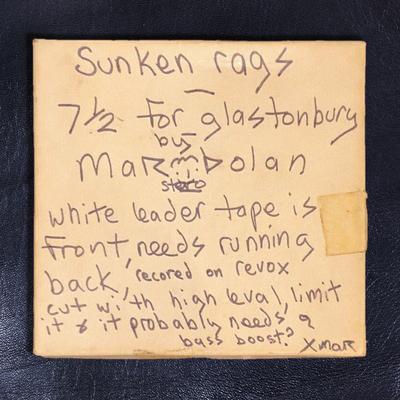 Sunken rags
7 1/2 for glastonbury
by
MARC BOLAN
stereo
white leader tape is
front, needs running
back, recored on revox
cut with high leval, limit
it & it probably needs a
bass boost? X MAR